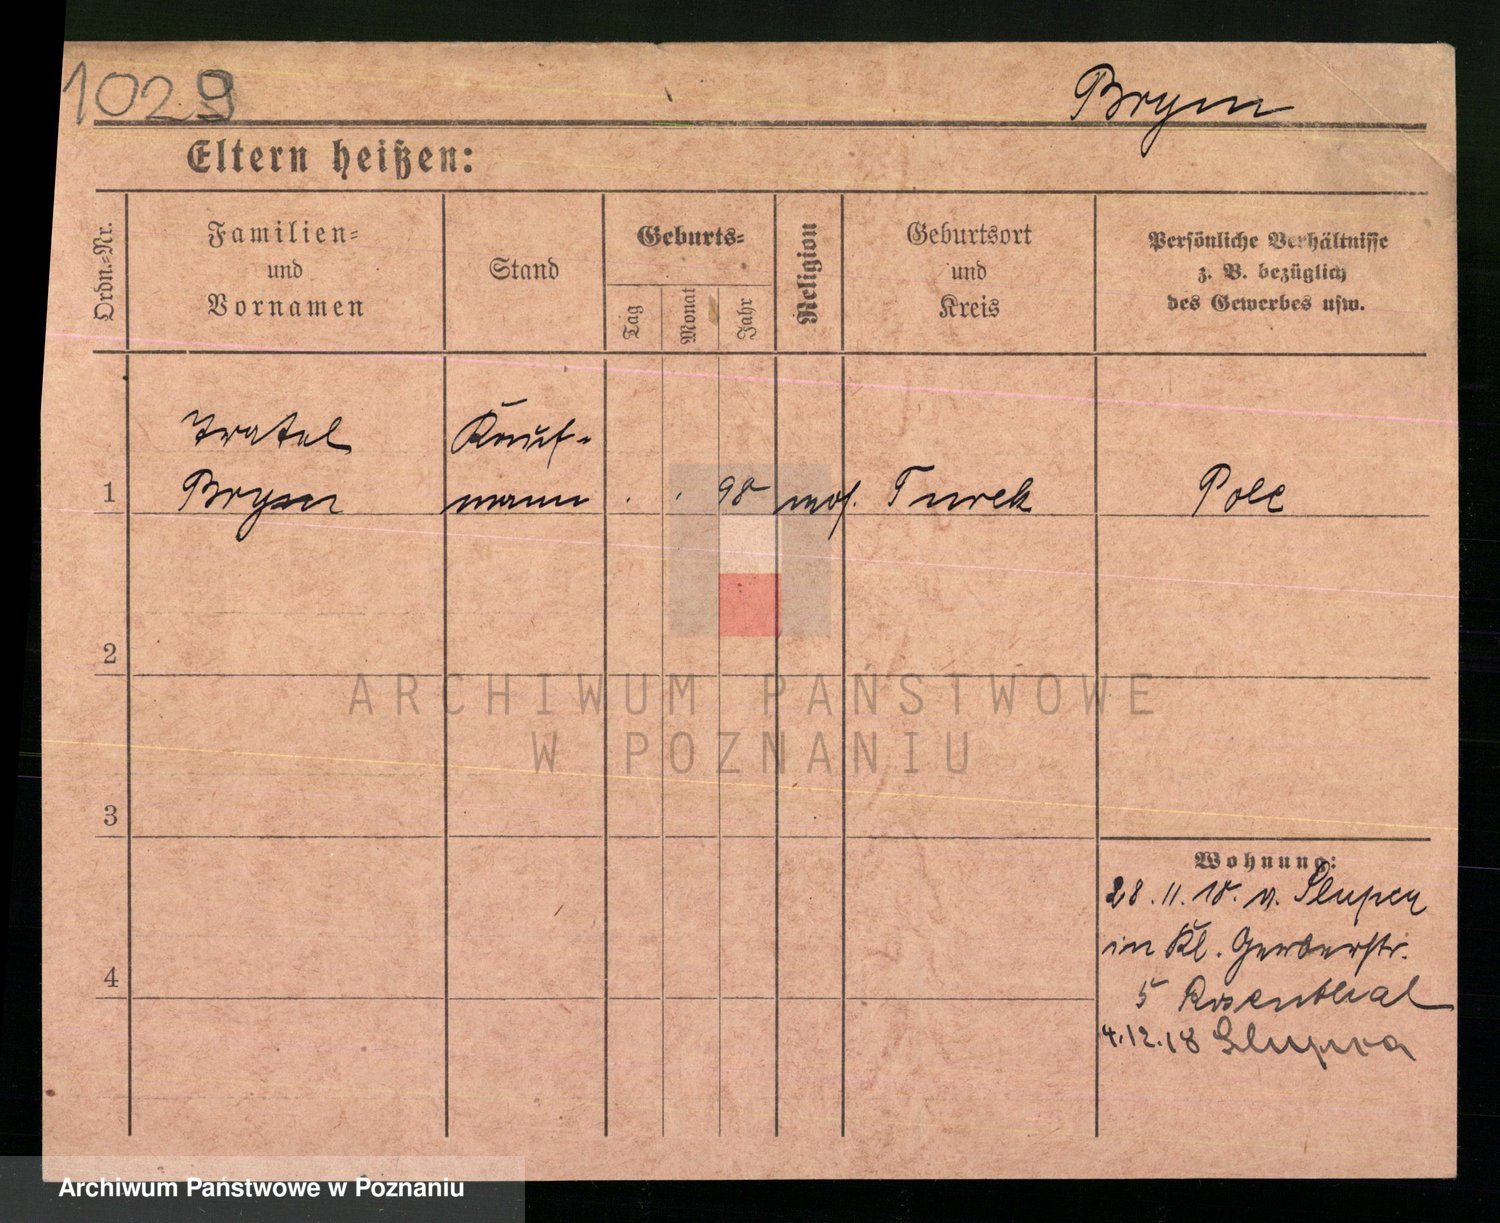 1029
Brym
Eltern heißen:
Ordn.-Nr.
Familien-
und
Vornamen
Stand
Geburts-
Tag
Monat
Jahr
Religion
Geburtsort
und
Kreis
Persönliche Verhältnisse
z. B. bezüglich
des Gewerbes usw.
Kauf-
1 Brym mann . . 98 mos. Turek Pole
2
ARCHIWUM PAŃSTWOWE
W POZNANIU
3
Wohnung:
28.11.18. v. Slupca
in Kl. Gerberstr.
4
5 Rosenthal
4.12.18 Slupca
Archiwum Państwowe w Poznaniu